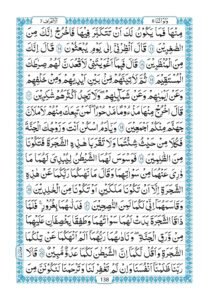 مِنْهَا فَمَا يَكُوْنُ لَكَ اَنْ تَتَكَبَّرَ فِيْهَا فَاخْرُجْ اِنَّكَ مِنَ
الصّٰغِرِيْنَ قَالَ اَنْظِرْنِيْٓ اِلٰى يَوْمِ يُبْعَثُوْنَ قَالَ اِنَّكَ مِنَ
الْمُنْظَرِيْنَ قَالَ فَبِمَآ اَغْوَيْتَنِيْ لَاَقْعُدَنَّ لَهُمْ صِرَاطَكَ
الْمُسْتَقِيْمَ ثُمَّ لَاٰتِيَنَّهُمْ مِّنْۢ بَيْنِ اَيْدِيْهِمْ وَمِنْ خَلْفِهِمْ
وَعَنْ اَيْمَانِهِمْ وَعَنْ شَمَآئِلِهِمْ وَلَا تَجِدُ اَكْثَرَهُمْ شٰكِرِيْنَ
قَالَ اخْرُجْ مِنْهَا مَذْءُوْمًا مَّدْحُوْرًا لَمَنْ تَبِعَكَ مِنْهُمْ لَاَمْلَئَنَّ
جَهَنَّمَ مِنْكُمْ اَجْمَعِيْنَ وَيٰٓاٰدَمُ اسْكُنْ اَنْتَ وَزَوْجُكَ الْجَنَّةَ
فَكُلَا مِنْ حَيْثُ شِئْتُمَا وَلَا تَقْرَبَا هٰذِهِ الشَّجَرَةَ فَتَكُوْنَا
مِنَ الظّٰلِمِيْنَ فَوَسْوَسَ لَهُمَا الشَّيْطٰنُ لِيُبْدِيَ لَهُمَا مَا
وٗرِيَ عَنْهُمَا مِنْ سَوْاٰتِهِمَا وَقَالَ مَا نَهٰىكُمَا رَبُّكُمَا عَنْ هٰذِهِ
الشَّجَرَةِ اِلَّآ اَنْ تَكُوْنَا مَلَكَيْنِ اَوْ تَكُوْنَا مِنَ الْخٰلِدِيْنَ
وَقَاسَمَهُمَآ اِنِّيْ لَكُمَا لَمِنَ النّٰصِحِيْنَ فَدَلّٰىهُمَا بِغُرُوْرٍ فَلَمَّا
ذَاقَا الشَّجَرَةَ بَدَتْ لَهُمَا سَوْاٰتُهُمَا وَطَفِقَا يَخْصِفٰنِ عَلَيْهِمَا
مِنْ وَّرَقِ الْجَنَّةِ وَنَادٰىهُمَا رَبُّهُمَآ اَلَمْ اَنْهَكُمَا عَنْ تِلْكُمَا
الشَّجَرَةِ وَاَقُلْ لَّكُمَآ اِنَّ الشَّيْطٰنَ لَكُمَا عَدُوٌّ مُّبِيْنٌ قَالَا
رَبَّنَا ظَلَمْنَآ اَنْفُسَنَا وَاِنْ لَّمْ تَغْفِرْ لَنَا وَتَرْحَمْنَا لَنَكُوْنَنَّ مِنَ
138